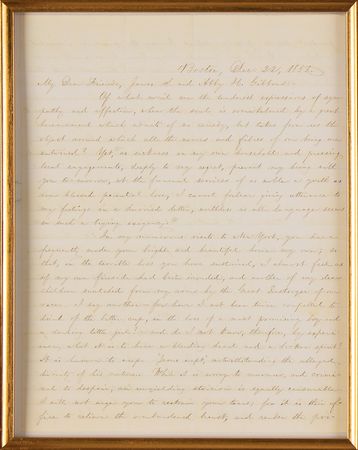 Boston, Dec. 24, 1855.
My Dear Friends, James S. and Abby H. Gibbons:
Of what avail are the tenderest expressions of sym-
pathy and affection, when the soul is overwhelmed by a great
bereavement which admits of no remedy, but takes from us the
object around which all the nerves and fibres of our being are
entwined? Yet, as sickness in my own household, and pressing
local engagements, deeply to my regret, prevent my being with
you to-morrow, at the funeral services of as noble a youth as
ever blessed parental love, I cannot forbear giving utterance to
my feelings in a hurried letter, worthless as all language seems
in such a trying exigency.
In my numerous visits to New York, you have
frequently made your bright and beautiful home my own; so
that, in the terrible loss you have sustained, I almost feel as
if my own fireside had been invaded, and another of my dear
children snatched from my arms by the Great Destroyer of our
race. I say another—for have I not been twice compelled to
drink of the bitter cup, in the loss of a most promising boy and
a darling little girl? and do I not know, therefore, by experi-
ence, what it is to have a bleeding heart and a broken spirit?
It is human to weep. "Jesus wept," notwithstanding the alleged
divinity of his nature. While it is wrong to murmur, and crimi-
nal to despair, an unyielding stoicism is equally censurable.
I will not urge you to restrain your tears, for it is their of-
fice to relieve the overburdened heart, and render the